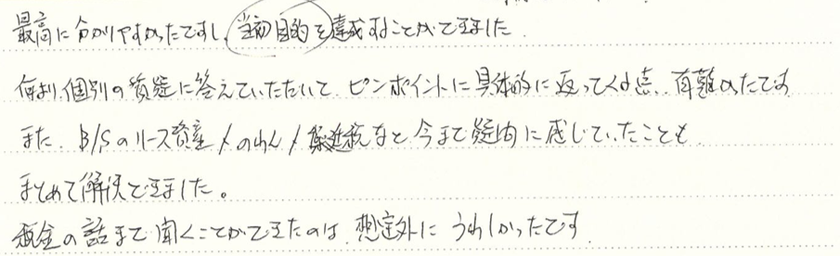 最高に分かりやすかったですし、当初目的を達成することができました。
何より、個別の質疑に答えていただいて、ピンポイントに具体的に返ってくる点、有難かったです。
また、B/Sのリース資産/のれん/繰延税など今まで疑問に感じていたことも、
まとめて解決できました。
税金の話まで聞くことができたのは、想定外にうれしかったです。